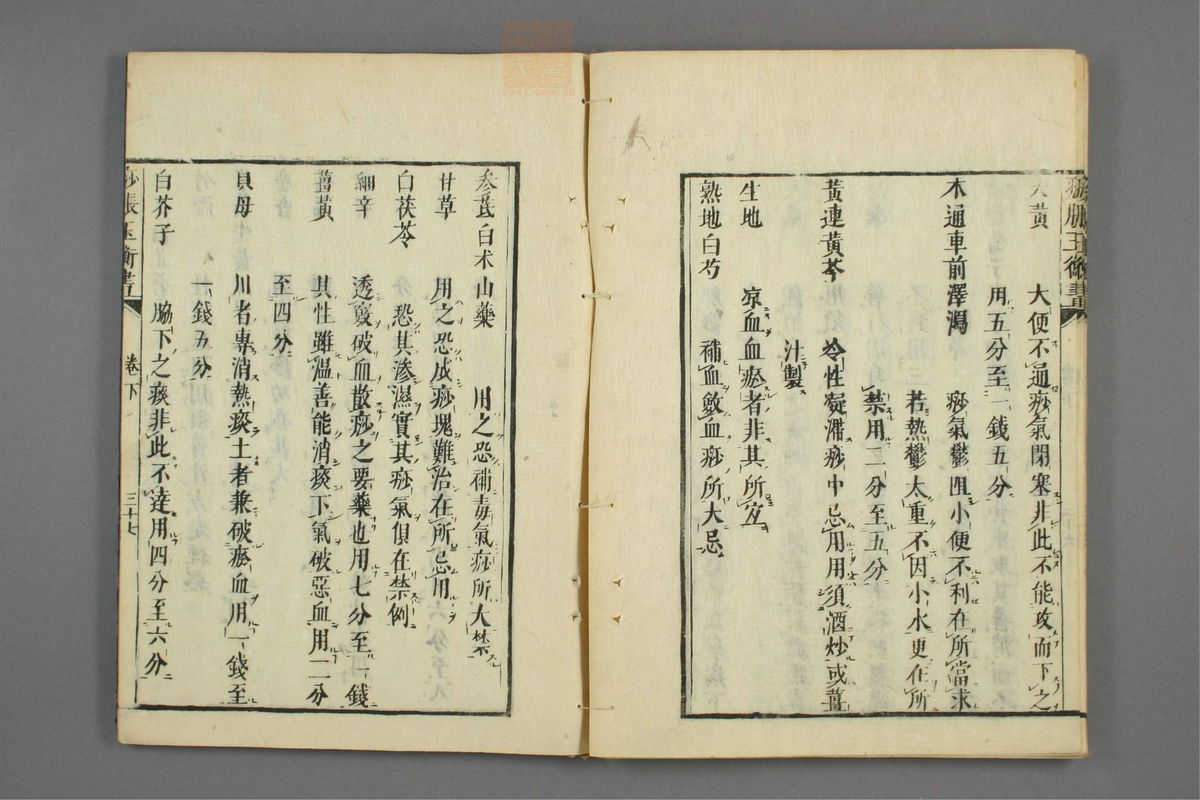 痧脹玉衡書
大黃　大便不通痧氣閉塞非此不能攻而下之
用五分至一錢五分
木通車前澤瀉　痧氣鬱阻小便不利在所當求
若熱鬱太重不因小水更在所
禁用二分至五分
黃連黃芩　冷性凝滯痧中忌用用須酒炒或薑
汁製
生地　凉血血瘀者非其所宜
熟地白芍　補血斂血痧所大忌
參芪白朮山藥　用之恐補毒氣痧所大禁
甘草　用之恐成痧塊難治在所忌用
白茯苓　恐其滲濕實其痧氣俱在禁例
細辛　透竅破血散痧之要藥也用七分至一錢
薑黃　其性雖温善能消痰下氣破惡血用二分
至四分
貝母　川者專消熱痰土者兼破瘀血用一錢至
一錢五分
白芥子　脇下之痰非此不達用四分至六分
痧脹玉衡書　卷下　三十七